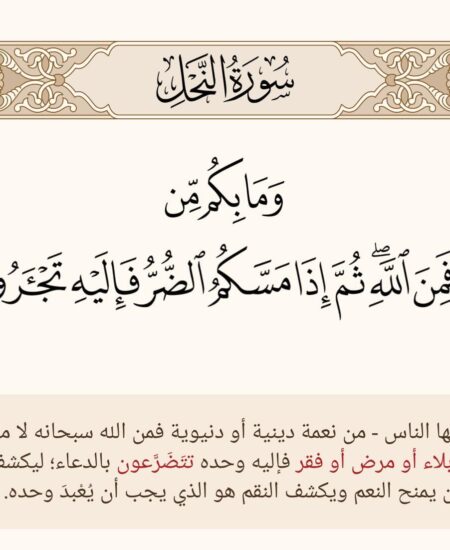 سُورَةُ النَّحْلِ
وَمَا بِكُم مِّن
فَمِنَ ٱللَّهِۖ ثُمَّ إِذَا مَسَّكُمُ ٱلضُّرُّ فَإِلَيْهِ
الناس - من نعمة دينية أو دنيوية فمن الله سبحانه لا
أو مرض أو فقر فإليه وحده تتَضَرَّعون بالدعاء؛
يمنح النعم ويكشف النقم هو الذي يجب أن يُعْبدَ وحده.